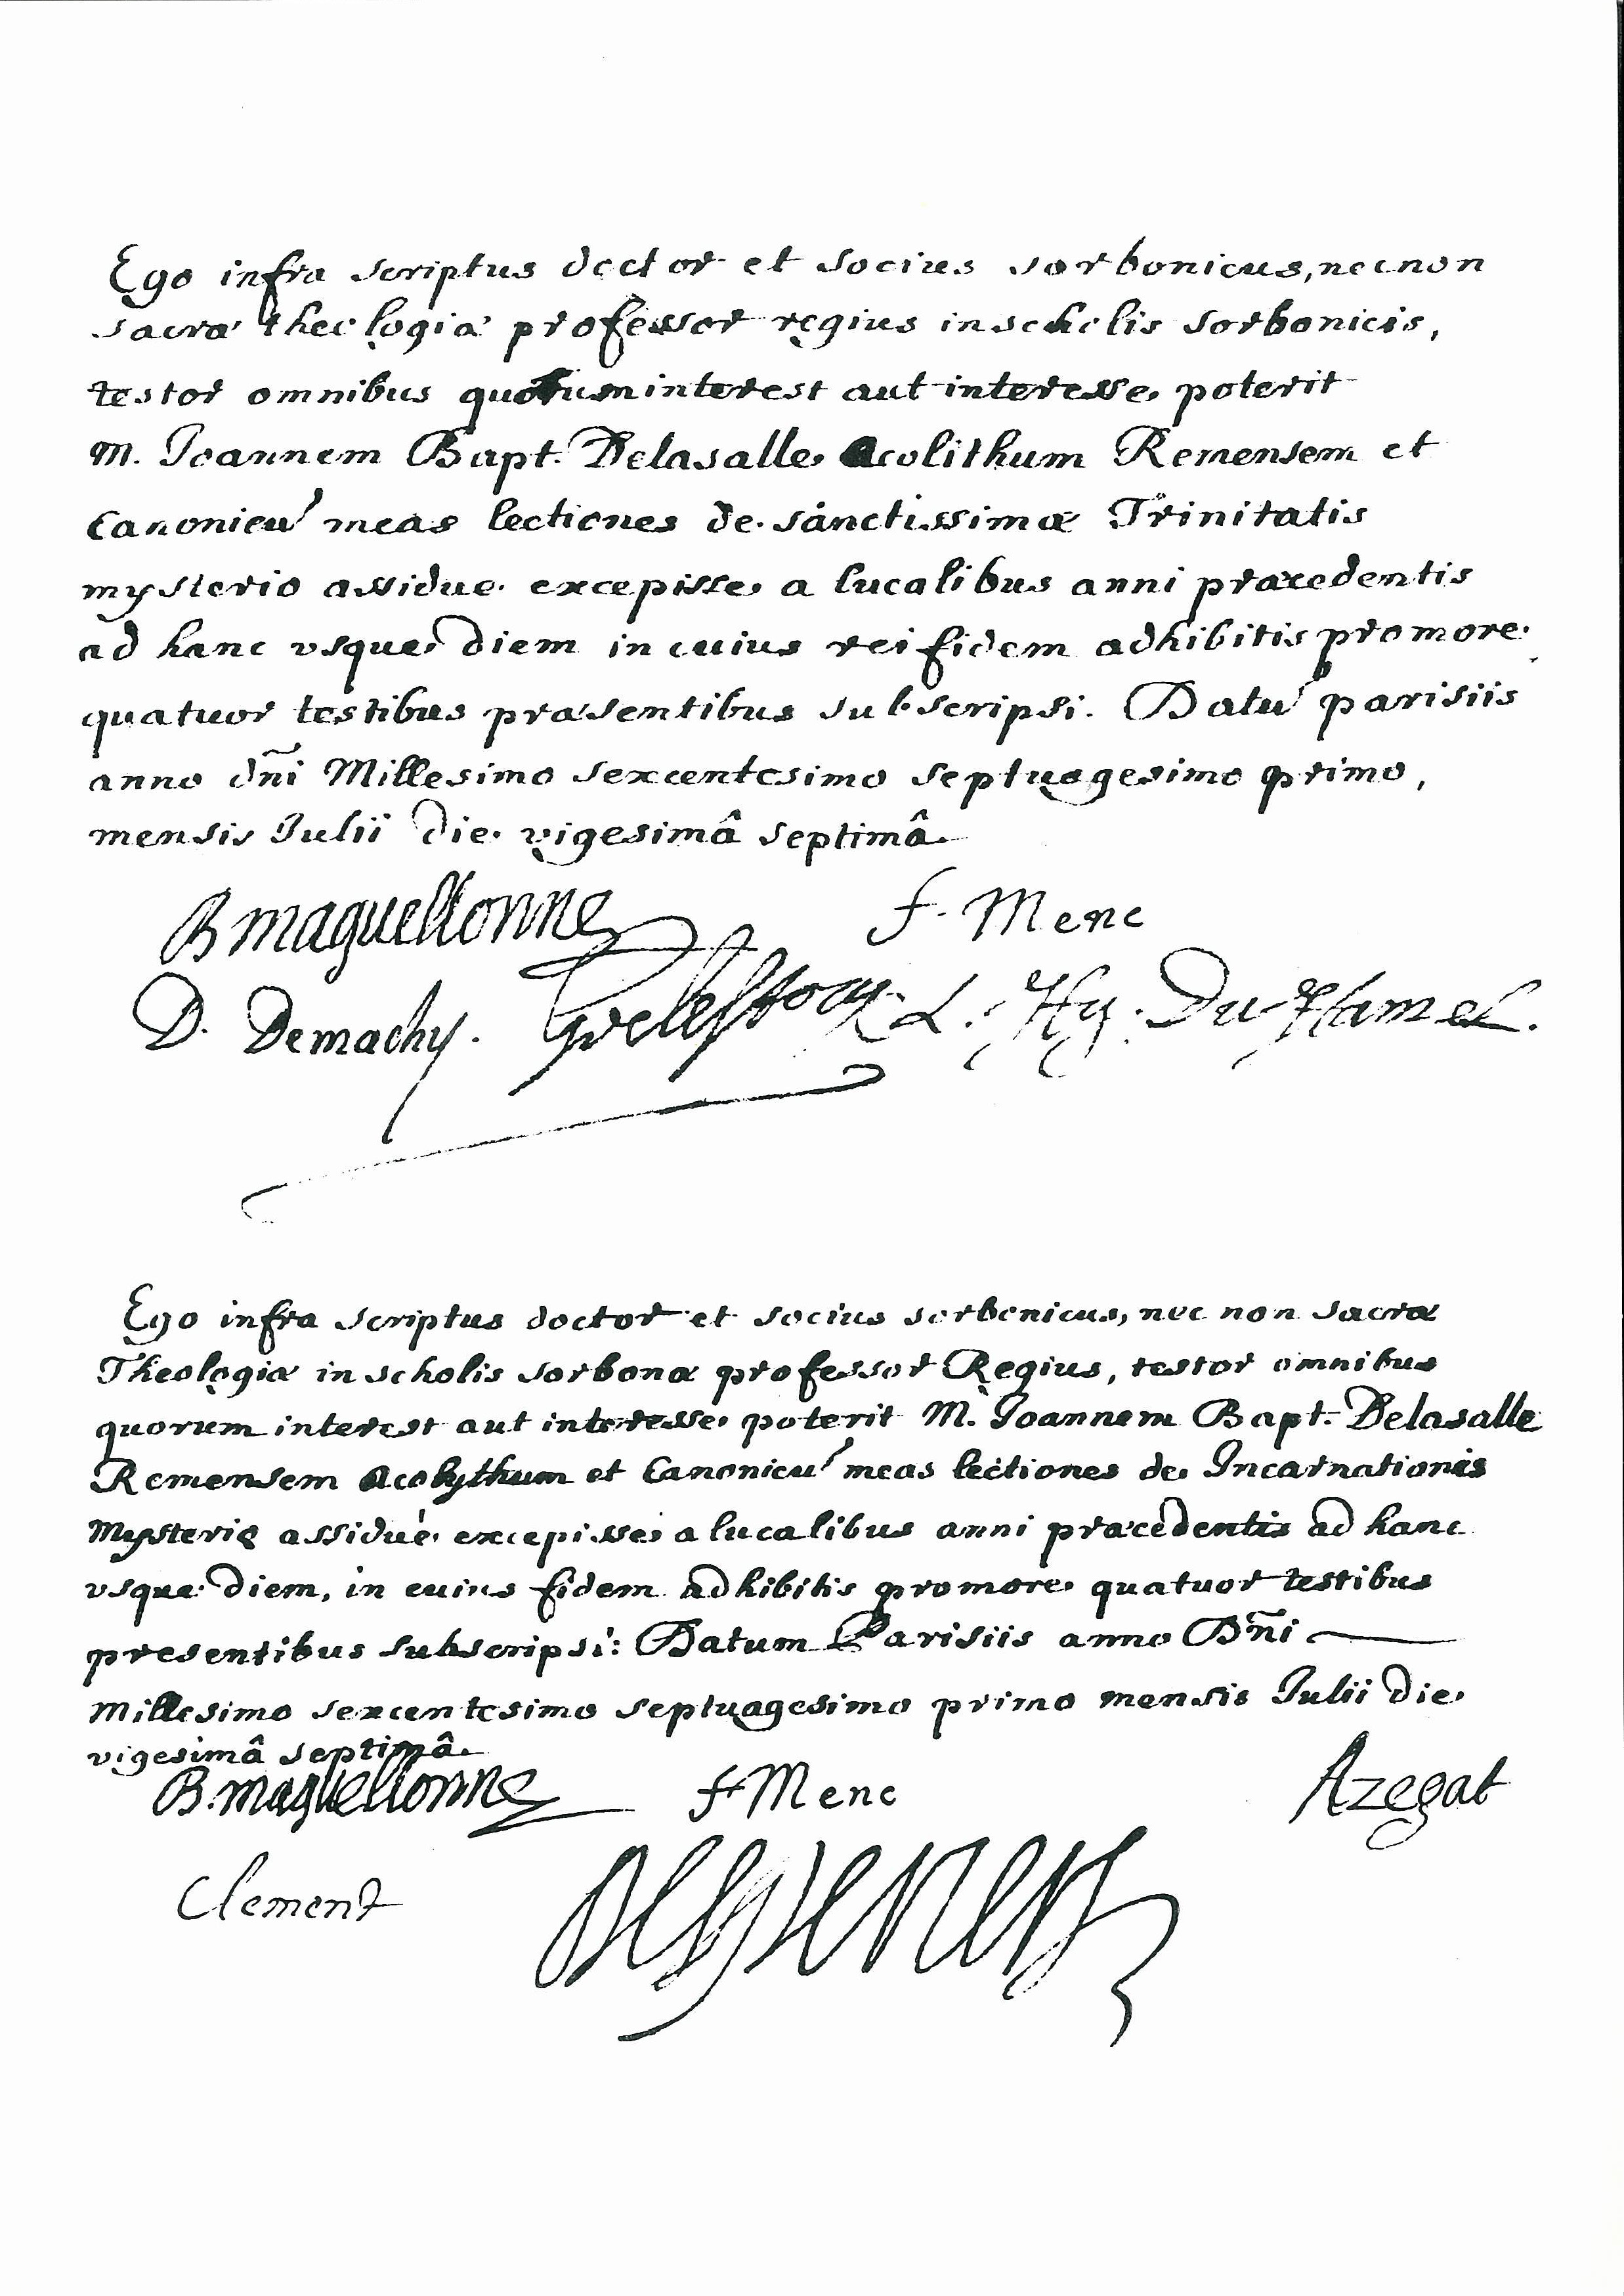 Ego infra scriptus doctor et socius sorbonicus, necnon
sacræ theologiæ professor regius in scholis sorbonicis,
testor omnibus quorum interest aut interesse poterit
M. Joannem Bapt. Delasalle Acolithum Remensem et
Canonicu' meas lectiones de sanctissimæ Trinitatis
mysterio assidue excepisse a lucalibus anni præcedentis
ad hanc vsque diem in cuius rei fidem adhibitis pro more
quatuor testibus præsentibus subscripsi. Datu' parisiis
anno dñi Millesimo sexcentesimo septuagesimo primo,
mensis Julii die vigesimâ septimâ.
B maguellonne f. Menc
D. Demachy. L. Hy. Du Hamel.
Ego infra scriptus doctor et socius sorbonicus, nec non sacræ
Theologiæ in scholis sorbonæ professor Regius, testor omnibus
quorum interest aut interesse poterit M. Joannem Bapt. Delasalle
Remensem Acolythum et Canonicu' meas lectiones de Incarnationis
Mysterio assiduè excepisse a lucalibus anni præcedentis ad hanc
vsque diem, in cuius fidem adhibitis pro more quatuor testibus
presentibus subscripsi: Datum Parisiis anno Dñi
Millesimo sexcentesimo septuagesimo primo mensis Julii die
vigesimâ septimâ.
B. maguellonne f Menc Azegat
Clement